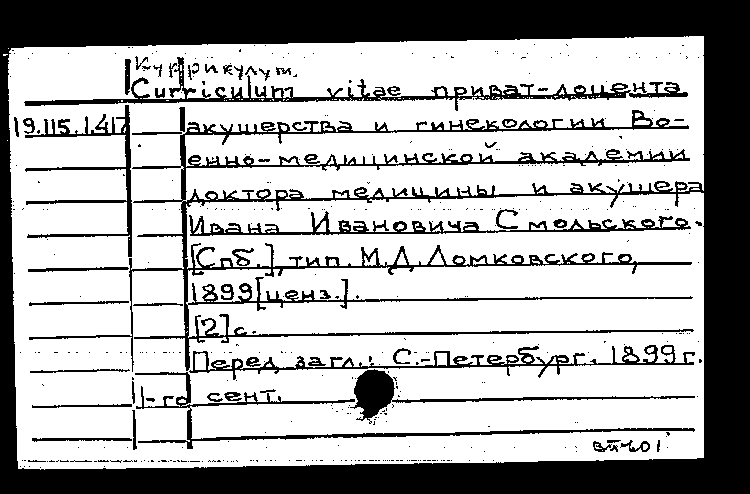 Куррикулум.
Curriculum vitae приват-доцента
19.115.1.417 акушерства и гинекологии Во-
енно-медицинской академии
доктора медицины и акушера
Ивана Ивановича Смольского.
[Спб.], тип. М.Д. Ломковского,
1899 [ценз.].
[2] с.
Перед загл.: С.-Петербург. 1899 г.
1-го сент.